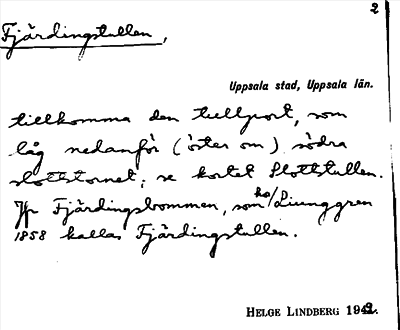 2
Fjärdingstullen,
Uppsala stad, Uppsala län.
tillkomma den tullport, som
låg nedanför (öster om) södra
slottstornet; se kortet Slottstullen.
Jfr Fjärdingsbommen, som hos/Ljunggren
1858 kallas Fjärdingstullen.
HELGE LINDBERG 1942.